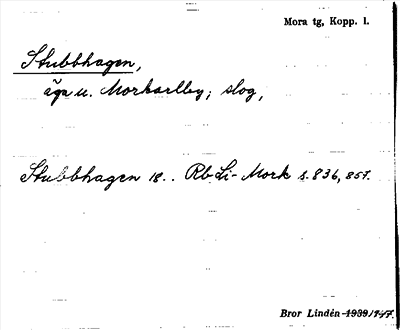 Mora tg, Kopp. l.
Stubbhagen,
äga u. Morkarlby; slog,
Stubbhagen 18.. Rb-Li-Mork s. 836, 857.
Bror Lindén 1939/